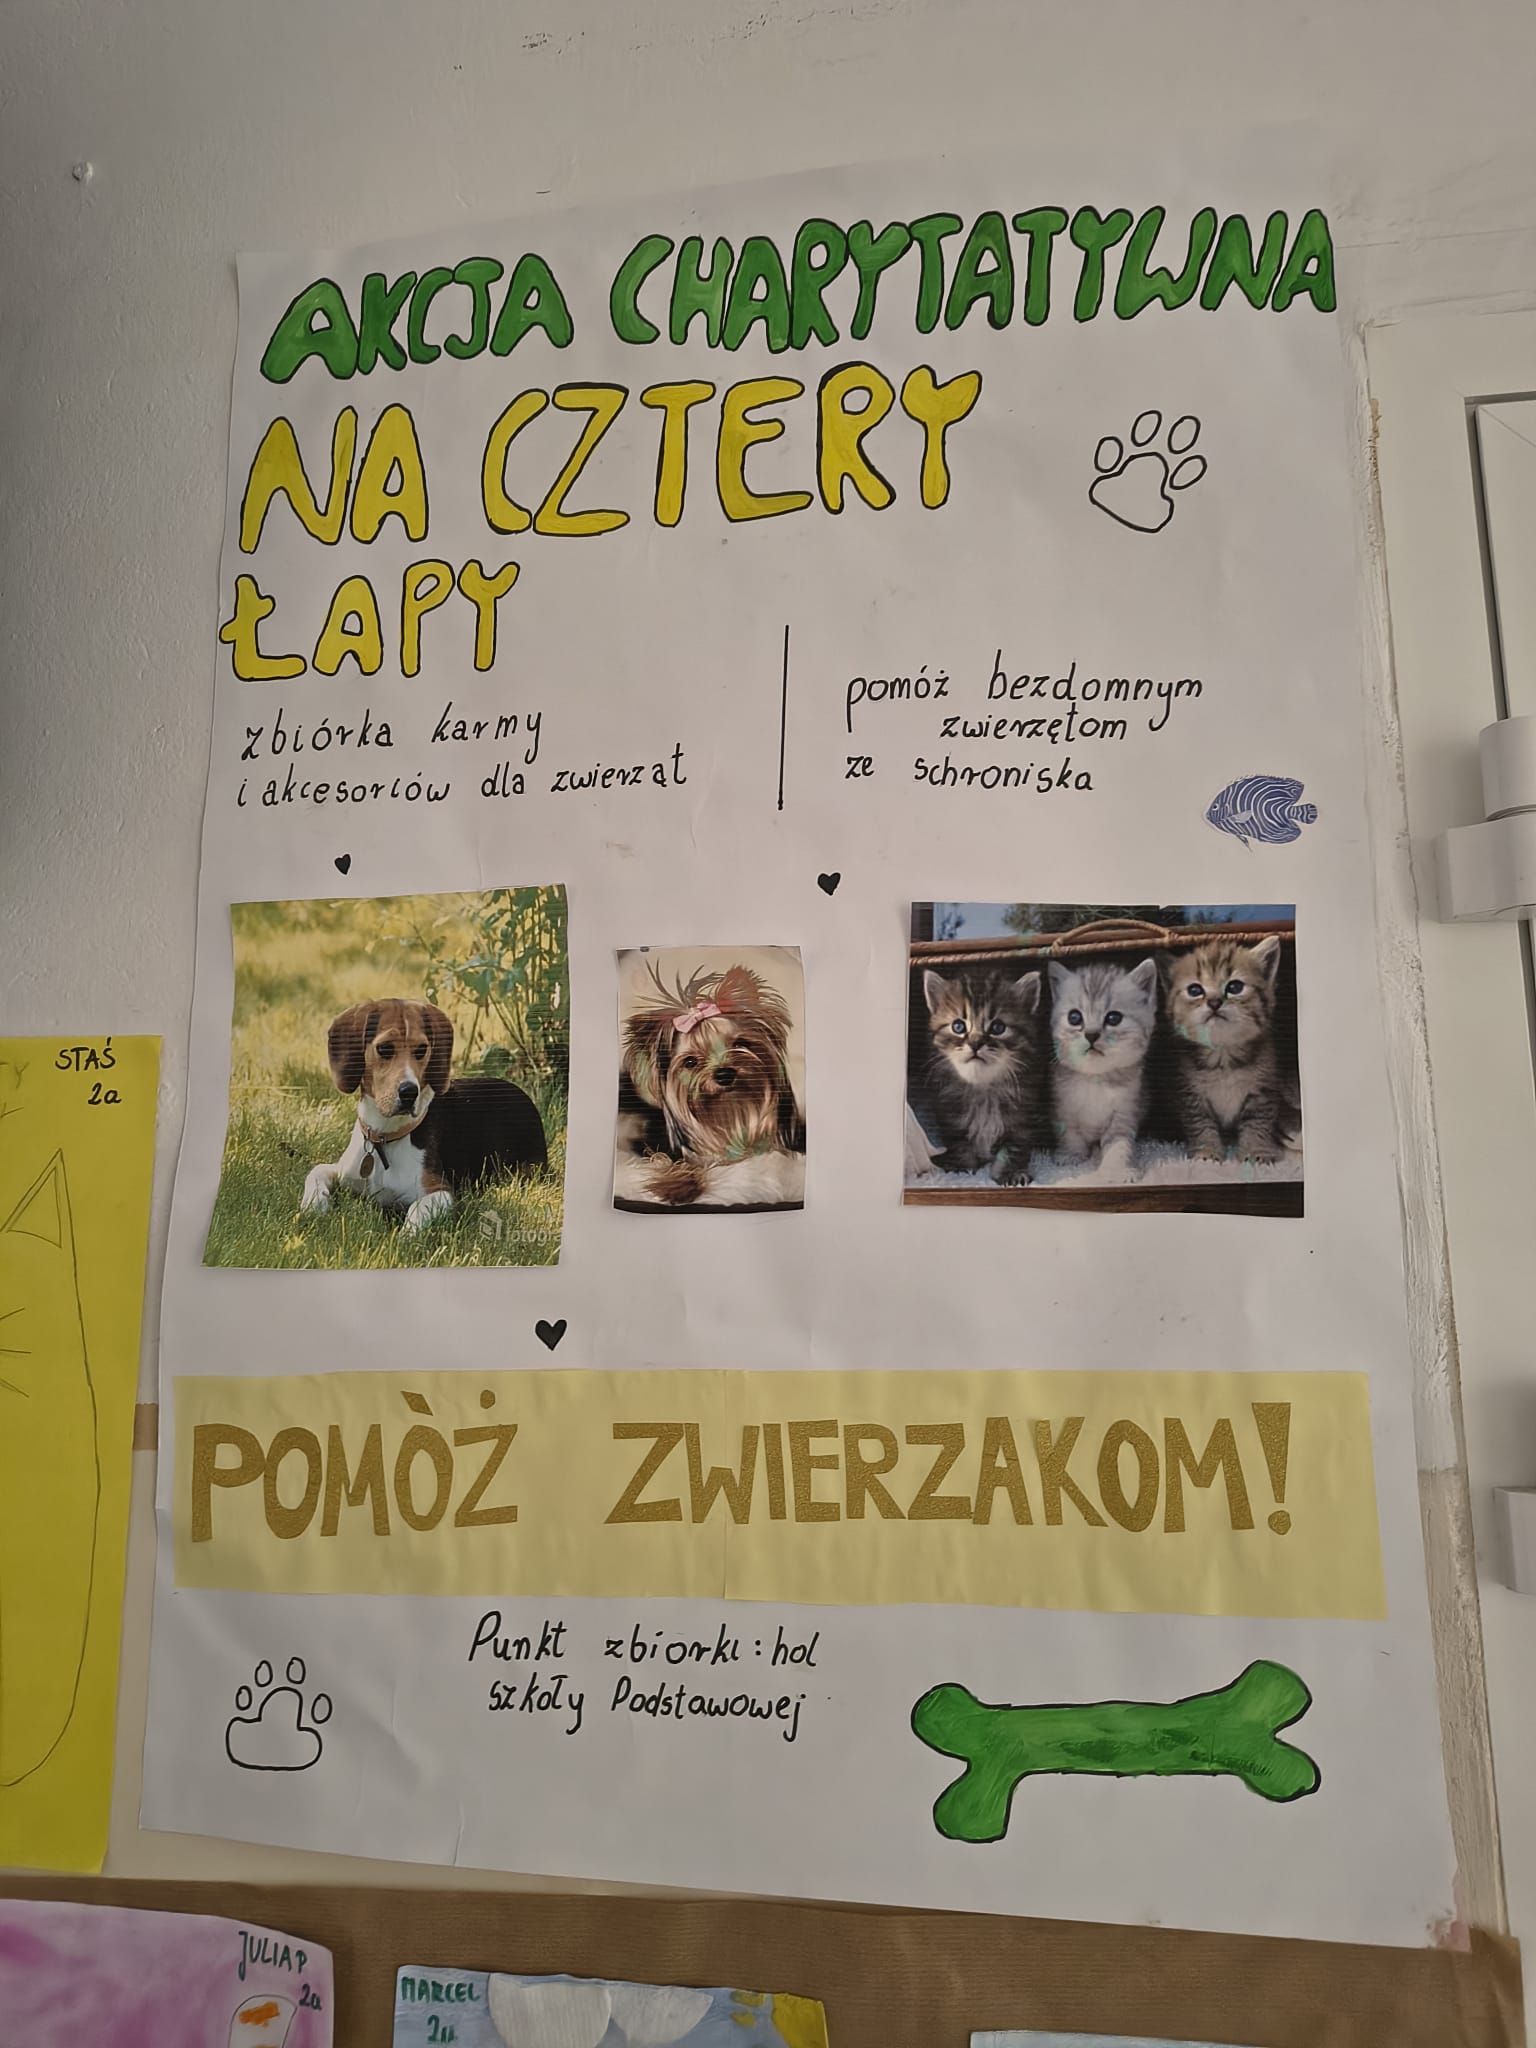 AKCJA CHARYTATYWNA
NA CZTERY
ŁAPY
zbiórka karmy
i akcesoriów dla zwierząt
pomóż bezdomnym
zwierzętom
ze schroniska
POMÒŻ ZWIERZAKOM!
Punkt zbiorki: hol
szkoły Podstawowej
STAŚ
2a
JULIA P
2a
MARCEL